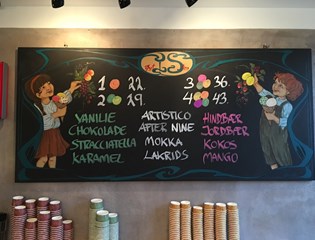 1 22.
2 29.
3 36.
4 43.
VANILIE
CHOKOLADE
STRACCIATELLA
KARAMEL
ARTISTICO
AFTER NINE
MOKKA
LAKRIDS
HINDBÆR
JORDBÆR
KOKOS
MANGO